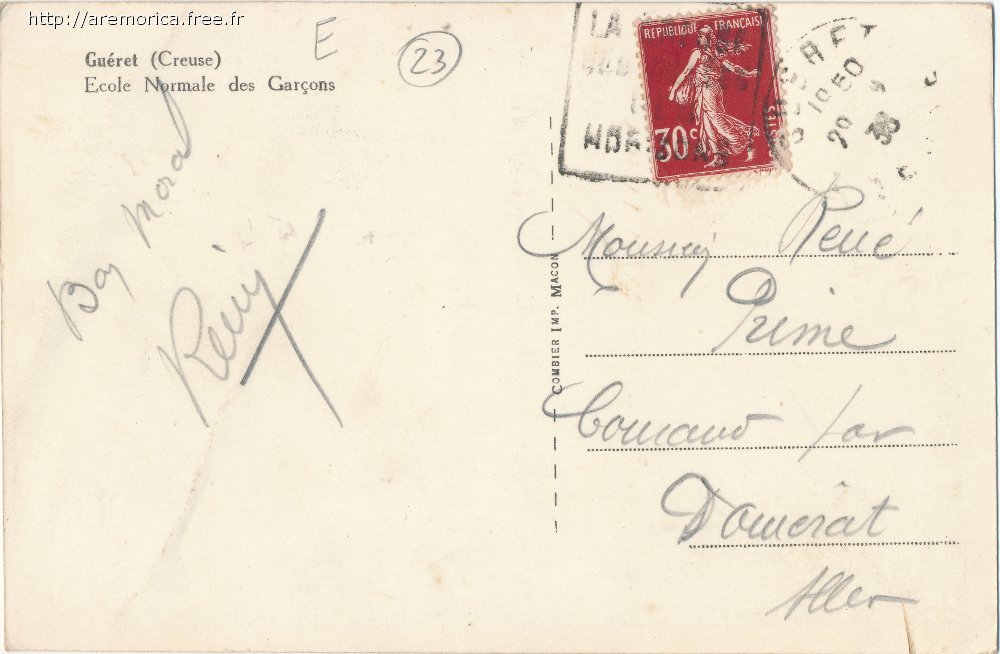 http://aremorica.free.fr
E
23
Guéret (Creuse)
Ecole Normale des Garçons
LA
REPUBLIQUE FRANÇAISE
30c
POSTES
RET
10 50
20
38
Bon Moral
Rémy
COMBIER IMP. MACON
Monsieur René
Prime
Couraud par
Domérat
Allier